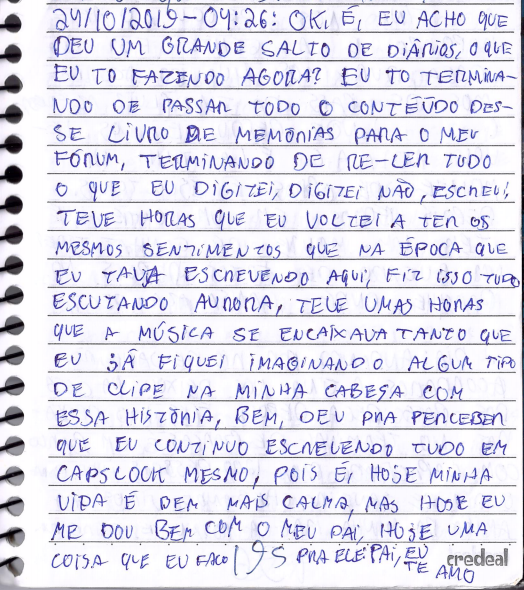 24/10/2019 - 04:26: OK, É, EU ACHO QUE
DEU UM GRANDE SALTO DE DIÁRIAS, O QUE
EU TO FAZENDO AGORA? EU TO TERMINA-
NDO DE PASSAR TODO O CONTEÚDO DES-
SE LIVRO DE MEMÓRIAS PARA O MEU
FÓRUM, TERMINANDO DE RE-LER TUDO
O QUE EU DIGITEI, DIGITEI NÃO, ESCREVI,
TEVE HORAS QUE EU VOLTEI A TER OS
MESMOS SENTIMENTOS QUE NA ÉPOCA QUE
EU TAVA ESCREVENDO AQUI, FIZ ISSO TUDO
ESCUTANDO AURORA, TEVE UMAS HORAS
QUE A MÚSICA SE ENCAIXAVA TANTO QUE
EU JÁ FIQUEI IMAGINANDO ALGUM TIPO
DE CLIPE NA MINHA CABESA COM
ESSA HISTÓRIA, BEM, DEU PRA PERCEBER
QUE EU CONTINUO ESCREVENDO TUDO EM
CAPSLOCK MESMO, POIS É, HOJE MINHA
VIDA É BEM MAIS CALMA, MAS HOJE EU
ME DOU BEM COM O MEU PAI, HOJE UMA
COISA QUE EU FACO 195 PRA ELE PAI, EU
TE AMO
credeal